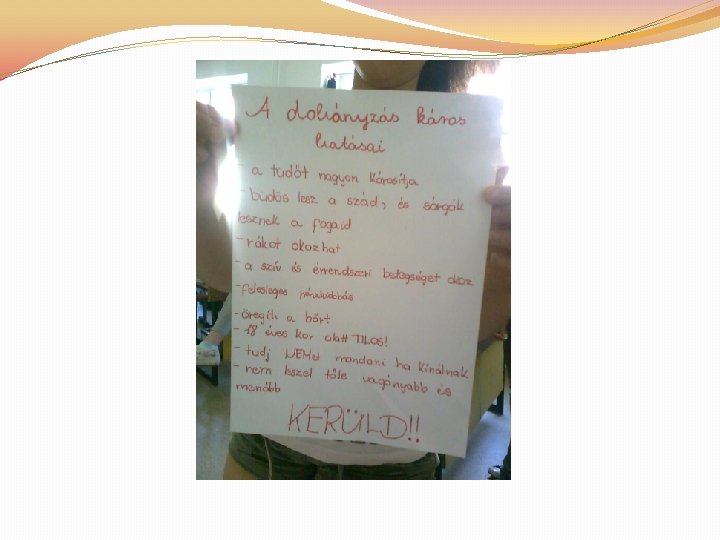 A dohányzás káros
hatásai
- a tüdőt nagyon károsítja
- büdös lesz a szád, és sárgák
lesznek a fogaid
- rákot okozhat
- a szív és érrendszeri betegséget okoz
- felesleges pénzkidobás
- öregíti a bőrt
- 18 éves kor alatt TILOS!
- tudj NEMet mondani ha kínálnak
- nem leszel tőle vagányabb és
menőbb
KERÜLD!!